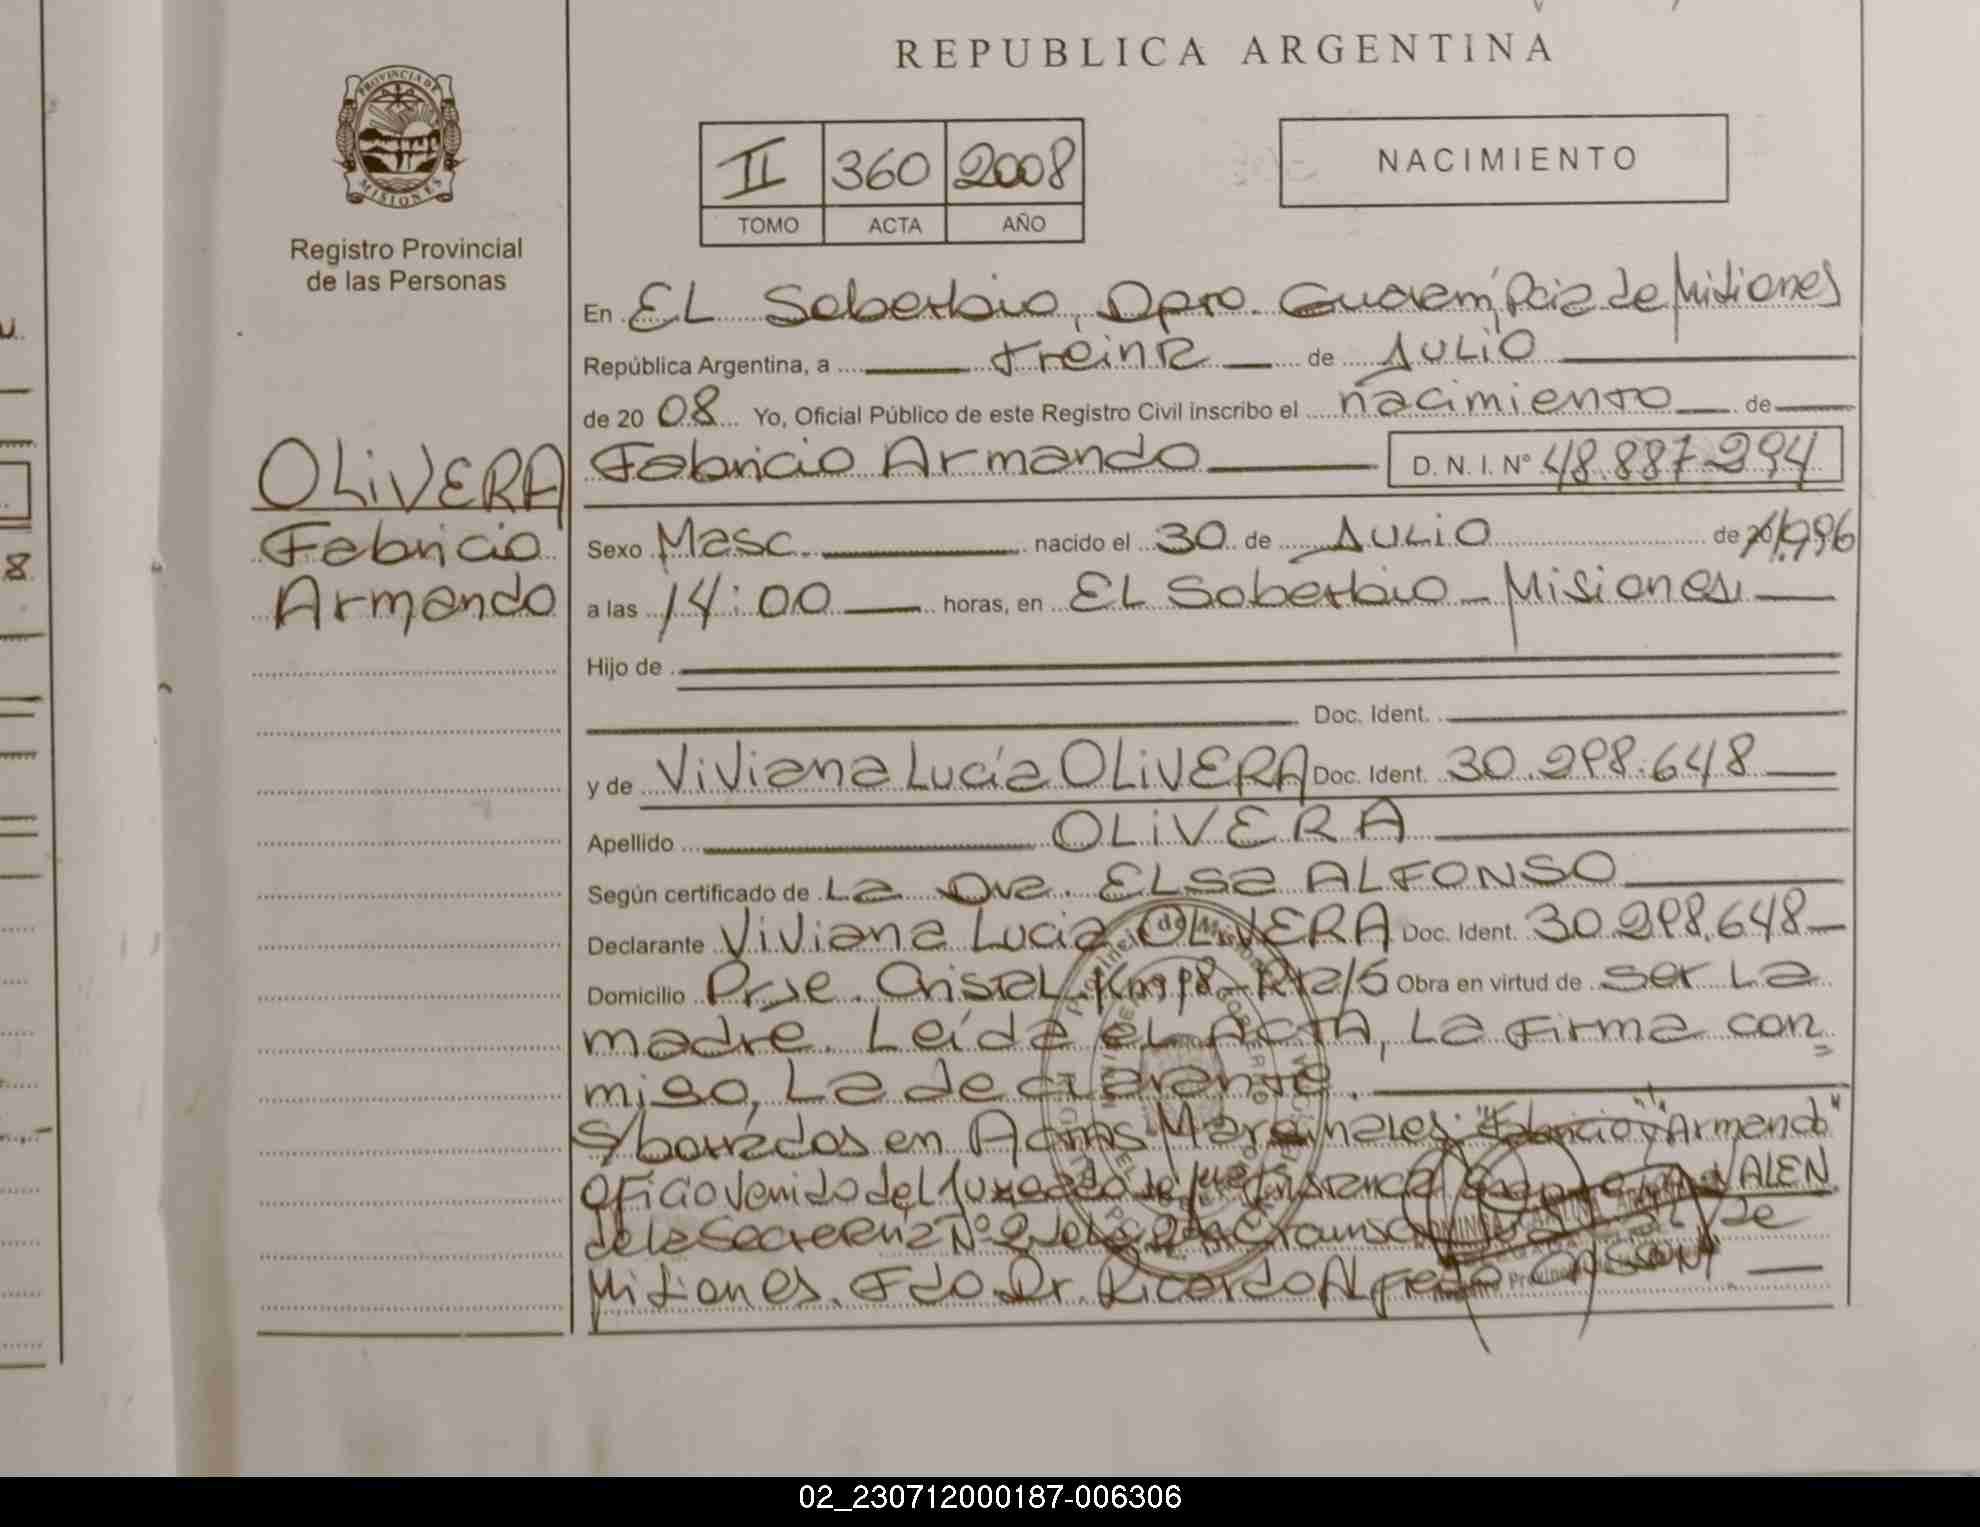 REPUBLICA ARGENTINA
PROVINCIA DE
MISIONES
Registro Provincial
de las Personas
II 360 2008
TOMO ACTA AÑO
NACIMIENTO
En EL Soberbio, Dpto. Guaraní, Pcia de Misiones
República Argentina, a treinta de JULIO
de 20 08 Yo, Oficial Público de este Registro Civil inscribo el nacimiento de
Fabricio Armando D. N. I. N° 48.887.294
OLIVERA
Fabricio
Armando
Sexo Masc. nacido el 30 de JULIO de 1.996
a las 14:00 horas, en EL Soberbio - Misiones
Hijo de
Doc. Ident.
y de Viviana Lucía OLIVERA Doc. Ident. 30.298.648
Apellido OLIVERA
Según certificado de La Dra. ELSA ALFONSO
Declarante Viviana Lucia OLIVERA Doc. Ident. 30.298.648
Domicilio Pje. Cristal Obra en virtud de ser La
madre. Leída el ACTA, La firma con
migo, La declarante.
S/borrados en Marginales: "Fabricio" y "Armando"
oficio venido del Juzgado de ALEN
de la Secretaria N° 2 de la de
Misiones. Fdo Dr. Ricardo Alfredo
02_230712000187-006306